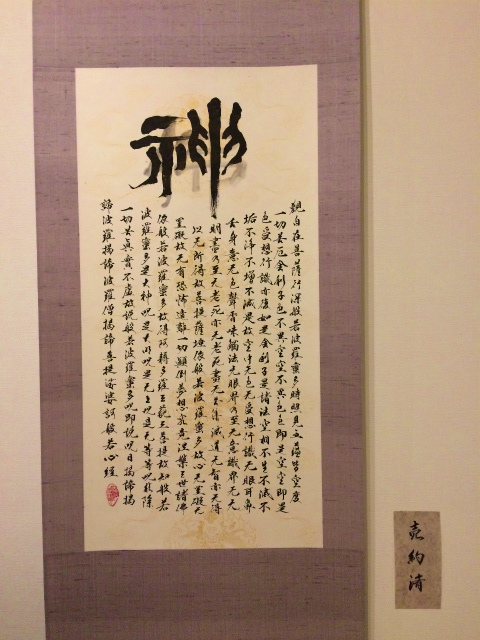 神
觀自在菩薩行深般若波羅蜜多時照見五蘊皆空度
一切苦厄舍利子色不異空空不異色色即是空空即是
色受想行識亦復如是舍利子是諸法空相不生不滅不
垢不淨不增不減是故空中无色无受想行識无眼耳鼻
舌身意无色聲香味觸法无眼界乃至无意識界无无
明盡乃至无老死亦无老死盡无苦集滅道无智亦无得
以无所得故菩提薩埵依般若波羅蜜多故心无罣礙无
罣礙故无有恐怖遠離一切顛倒夢想究竟涅槃三世諸佛
依般若波羅蜜多故得阿耨多羅三藐三菩提故知般若
波羅蜜多是大神咒是大明咒是无上咒是无等等咒能除
一切苦真實不虛故說般若波羅蜜多咒即說咒曰揭諦揭
諦波羅揭諦波羅僧揭諦菩提娑婆訶般若心經
約清